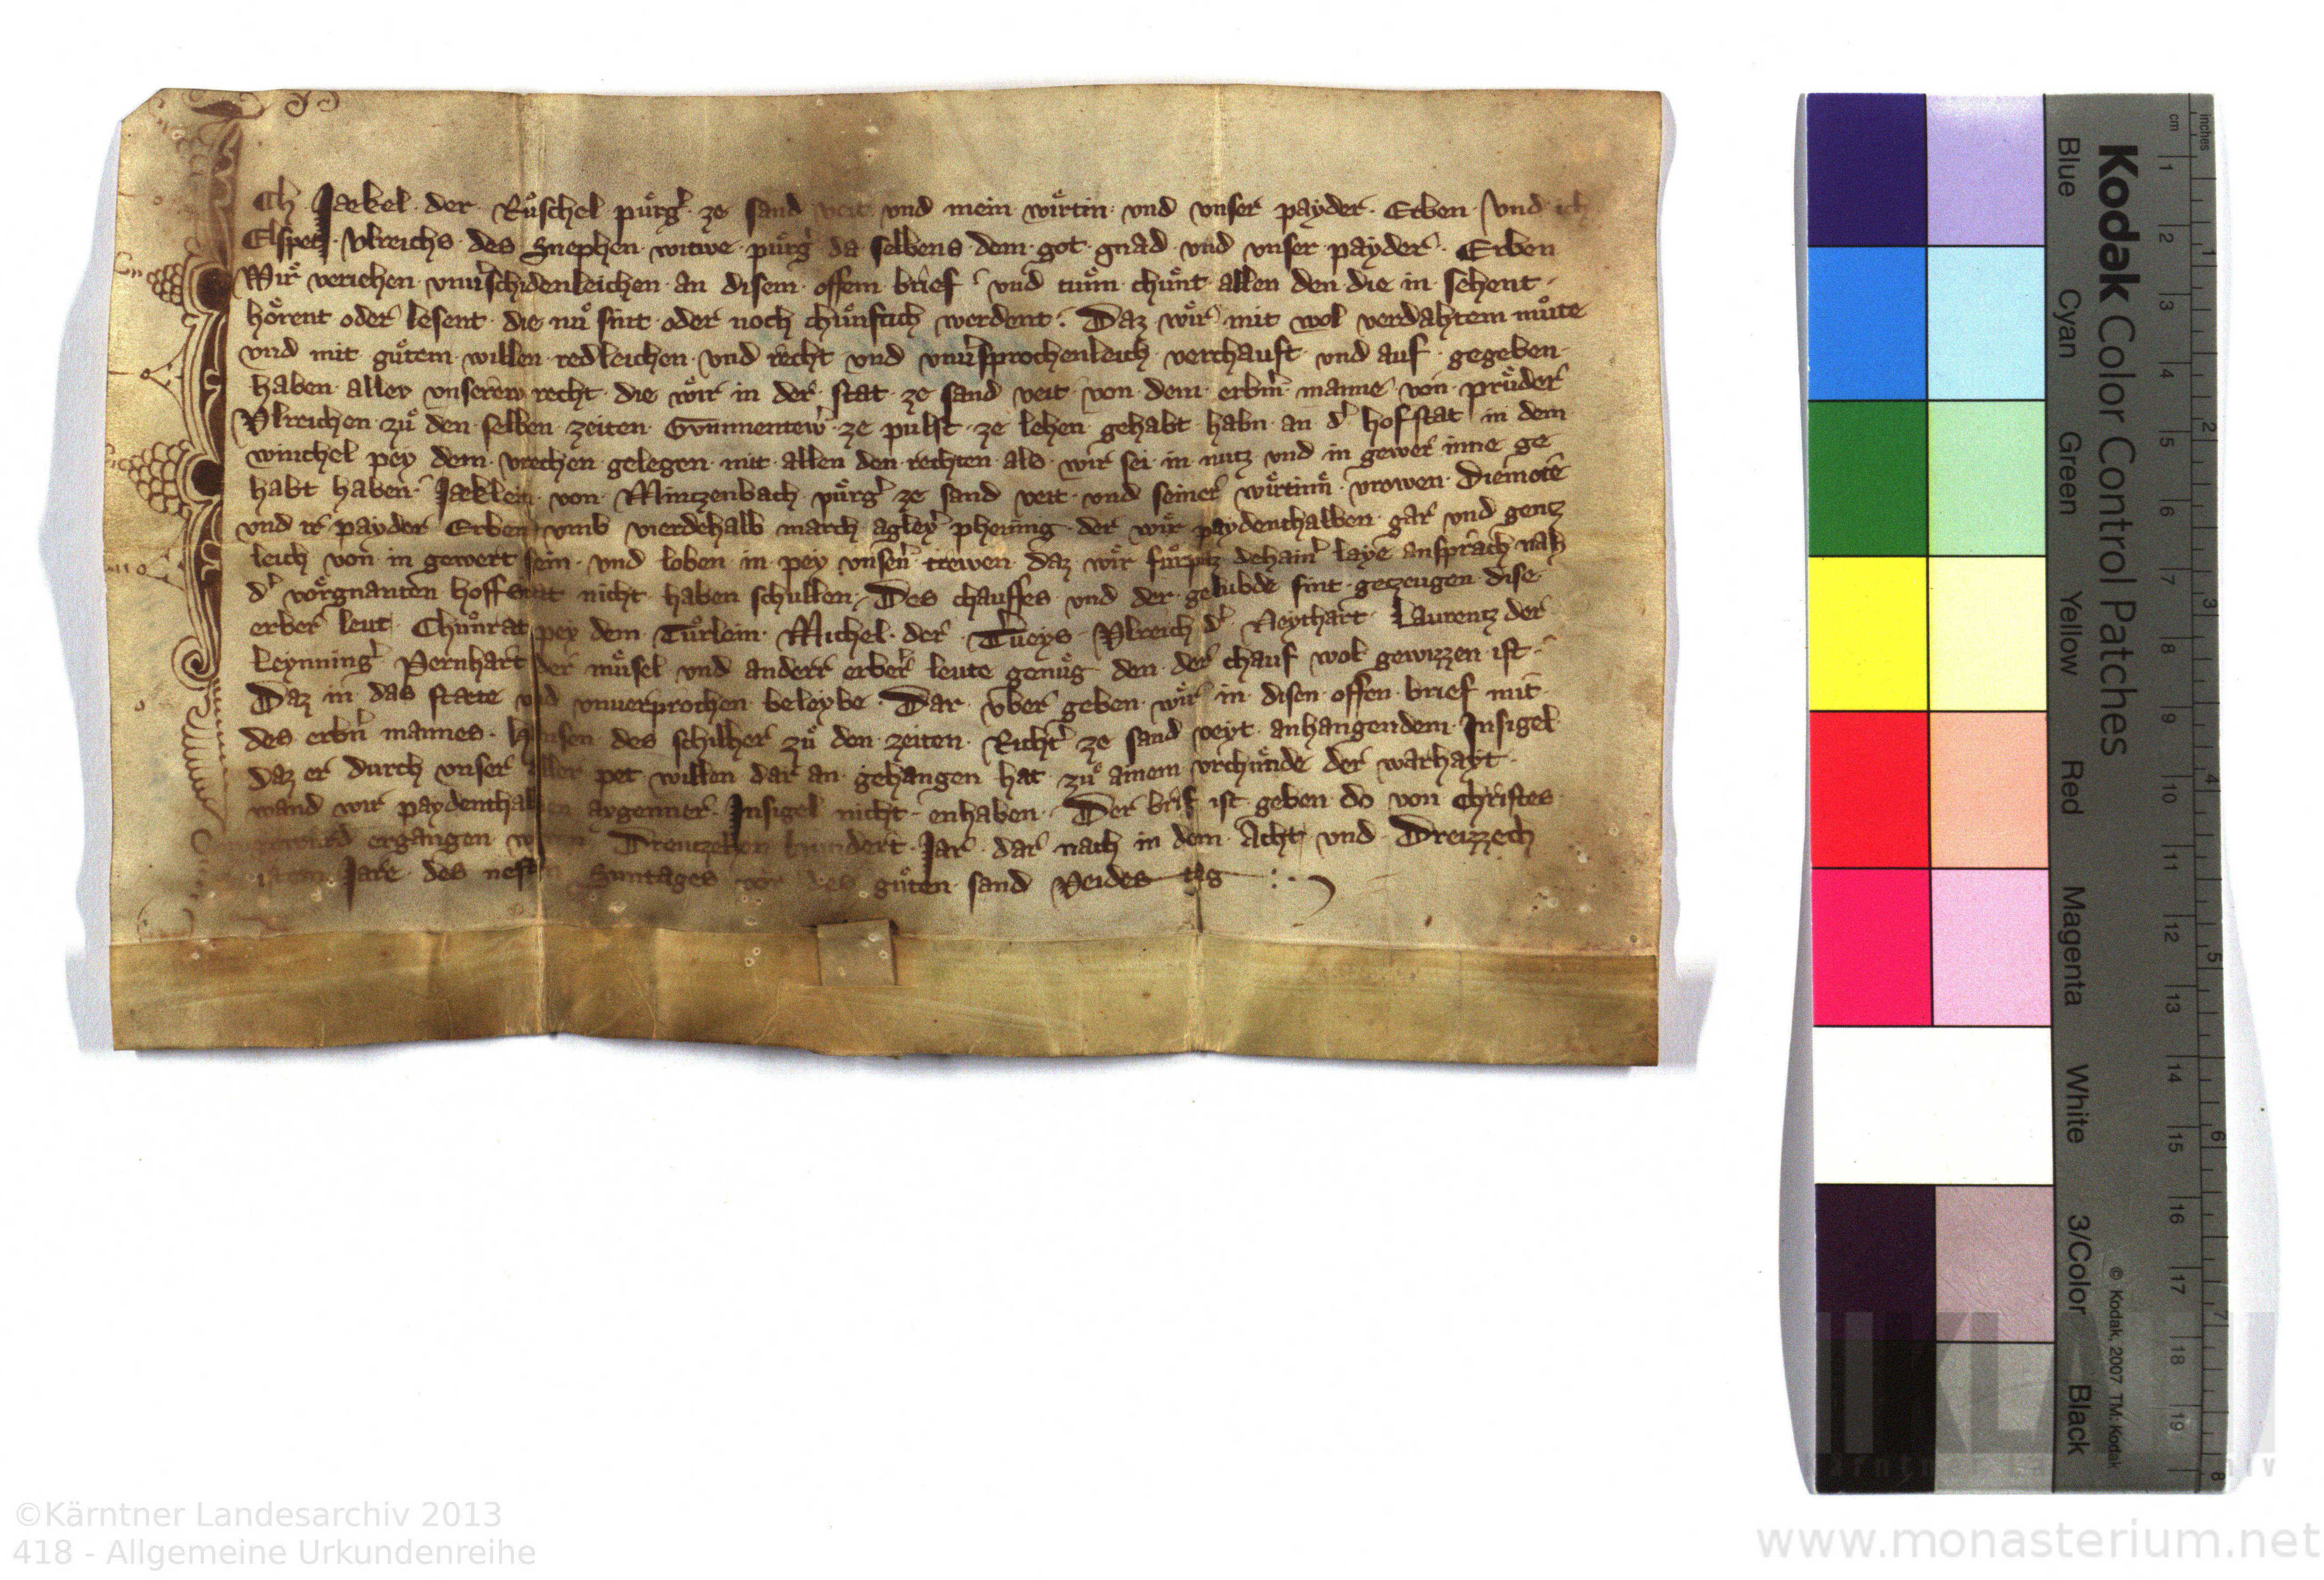 Ich Jaekel der Ruͤschel puͤrg̛ ze sand veit vnd mein wirtin vnd vnser payder Erben Vnd ich
Elspet Vlreichs des Snephen witwe puͤrg̛ da selbens dem got gnad vnd vnser payder Erben
Wir veriehen vnưschidenleichen an disem offem brief vnd tuͤn chuͤnt allen den die in sehent
hoͤrent oder lesent die nu sint oder noch chuͤnftich werdent Daz wir mit wol verdahtem muͤte
vnd mit guͤtem willen redleichen vnd recht vnd vnưsprochenleich verchauft vnd auf gegeben
haben aller vnserew recht die wir in der stat ze sand veit von dem erbm̛ manne von pruͤder
Vlreichen zuͤ den selben zeiten ze pulst ze lehen gehabt habn an d̛ hofstat in dem
winchel pey dem vrechen gelegen mit allen den rechten als wir sei in nutz vnd in gewer inne ge
habt haben Jaeklein von Mintzenbach puͤrg̛ ze sand veit vnd seiner wirtinn vrowen Diemote
vnd ir payder Erben vmb vierdehalb march agley̛ phening der wir paydenthalben gar vnd gentz
leich von in gewert sein vnd loben in pey vnsen̛ trewen daz wir fuͤrpaz dehain̛ laye ansprach nah
d̛ vorgnanten hoffstat nicht haben schullen Des chauffes vnd der gelubde sint getzeugen dise
erber leut Chuͤnrat pey dem Tuͤrlein Michel der Tueys Vlreich d̛ Neythart Laurentz der
Leynning̛ Pernhart der muͤsel vnd anderr erber̛ leute genuͤg den der chauf wol gewizzen ist
Daz in das staete vnd vnuerprochen beleybe Dar vber geben wir in disen offen brief mit
des erbn̛ mannes Hansen des schilher zuͤ den zeiten Richt̛ ze sand veyt anhangendem Insigel
daz er durch vnser aller pet willen dar an gehangen hat zuͤ ainem vrchuͤnde der warhayt
wand wir paydenthalben aygenner Insigel nicht enhaben Der brif ist geben do von Christes
ergangen waren Dreutzehen hundert Jar dar nach in dem Acht vnd Dreizzech
istem Jare des nesten Suntages vor des guͤten sand Veides tag
Kodak Color Control Patches
Blue Cyan Green Yellow Red Magenta White 3/Color Black
© Kodak, 2007 TM: Kodak
cm 1 2 3 4 5 6 7 8 9 10 11 12 13 14 15 16 17 18 19
inches 1 2 3 4 5 6 7 8
KLA
©Kärntner Landesarchiv 2013
418 - Allgemeine Urkundenreihe
www.monasterium.net